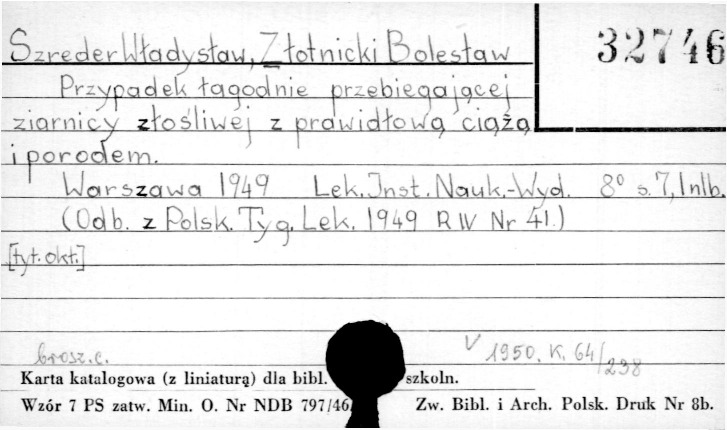 Szreder Władysław, Złotnicki Bolesław
32746
Przypadek łagodnie przebiegającej
ziarnicy złośliwej z prawidłową ciążą
i porodem.
Warszawa 1949 Lek. Inst. Nauk.-Wyd. 8° s. 7, 1 nlb.
(Odb. z Polsk. Tyg. Lek. 1949 R IV Nr 41.)
[tyt. okł.]
brosz. c.
V 1950. K. 64/238
Karta katalogowa (z liniaturą) dla bibl. szkoln.
Wzór 7 PS zatw. Min. O. Nr NDB 797/46 Zw. Bibl. i Arch. Polsk. Druk Nr 8b.